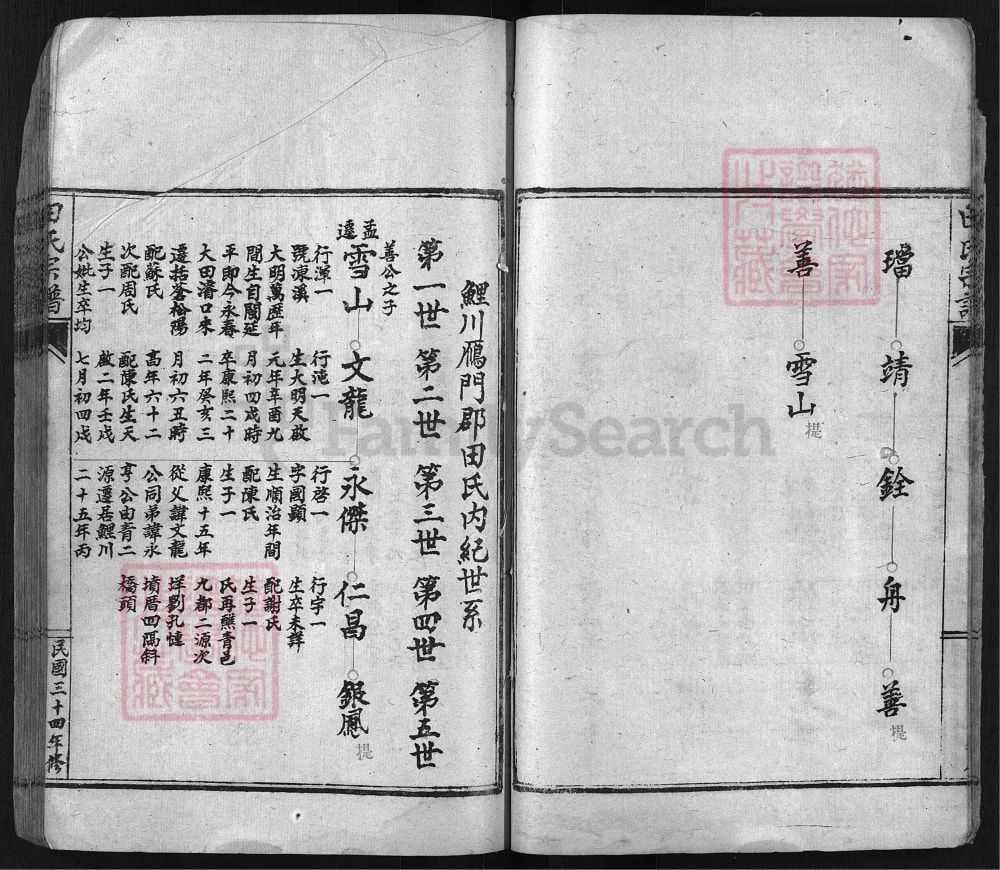 田氏宗譜
璫 靖 銓 舟 善 提
善 雪山 提
鯉川鴈門郡田氏內紀世系
第一世 第二世 第三世 第四世 第五世
善公之子
孟遷 雪山 文龍 永傑 仁昌 銀鳳 提
行深一
號凍溪
大明萬歷年
間生自閩延
平即今永春
大田溍口來
遷括蒼松陽
配蘇氏
次配周氏
生子一
公妣生卒均
行沌一
生大明天啟
元年辛酉九
月初四戌時
卒康熙二十
二年癸亥三
月初六丑時
高年六十二
配陳氏生天
啟二年壬戌
七月初四戌
行啓一
字國顯
生順治年間
配陳氏
生子一
康熙十五年
從父諱文龍
公同弟諱永
亨公由青二
源遷居鯉川
二十五年丙
行宇一
生卒未詳
配謝氏
生子一
氏再醮青邑
九都二源次
垟劉孔㥕
墳厝四隅斜
橋頭
田氏宗譜
民國三十四年修
FamilySearch